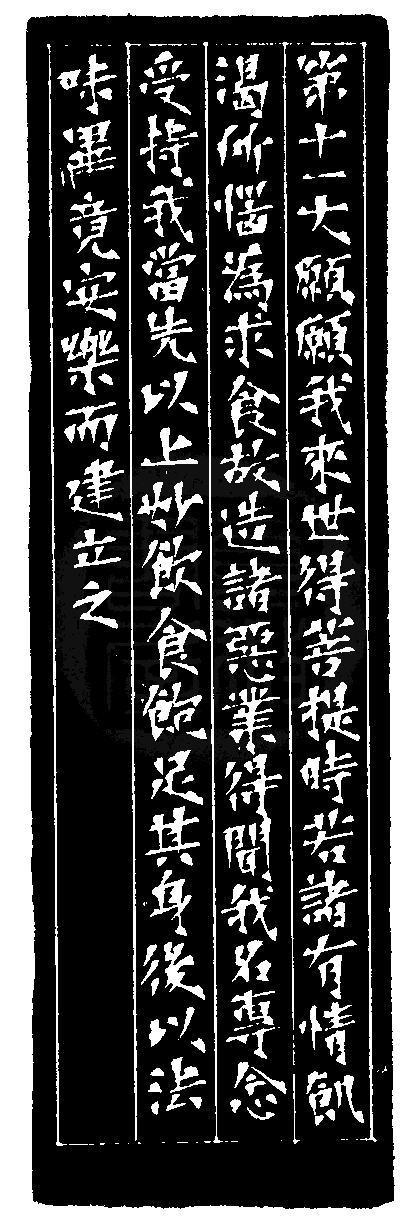 第十一大願願我來世得菩提時若諸有情飢
渴所惱為求食故造諸惡業得聞我名專念
受持我當先以上妙飲食飽足其身後以法
味畢竟安樂而建立之